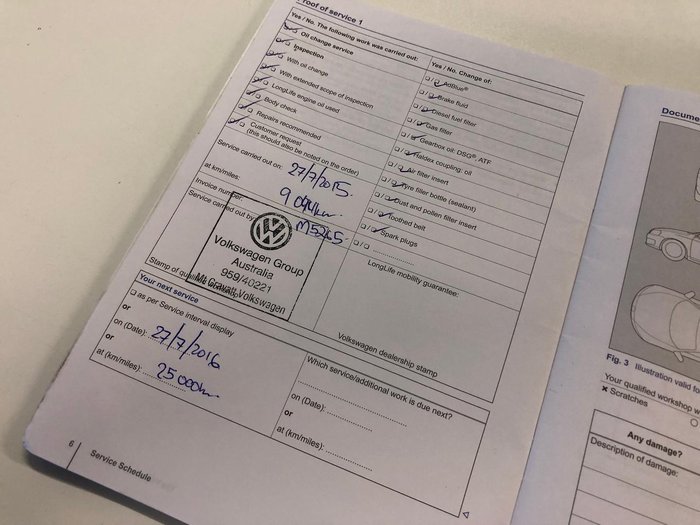 Proof of service 1
Yes / No. The following work was carried out:
Oil change service
Inspection
With oil change
With extended scope of inspection
LongLife engine oil used
Body check
Repairs recommended
Customer request
(this should also be noted on the order)
Service carried out on: 27/7/2015
at km/miles: 9 044km
Invoice number: M5265
Service carried out by:
Volkswagen Group
Australia
959/40221
Mt Gravatt Volkswagen
Stamp of qualified workshop
Yes / No. Change of:
AdBlue®
Brake fluid
Diesel fuel filter
Gas filter
Gearbox oil: DSG®, ATF
Haldex coupling: oil
Air filter insert
Tyre filler bottle (sealant)
Dust and pollen filter insert
Toothed belt
Spark plugs
LongLife mobility guarantee:
Volkswagen dealership stamp
Your next service
as per Service interval display
or
on (Date): 27/7/2016
or
at (km/miles): 25 000km
Which service/additional work is due next?
on (Date):
or
at (km/miles):
6
Service Schedule
Docume
Fig. 3 Illustration valid fo
Your qualified workshop w
✖ Scratches
Any damage?
Description of damage: